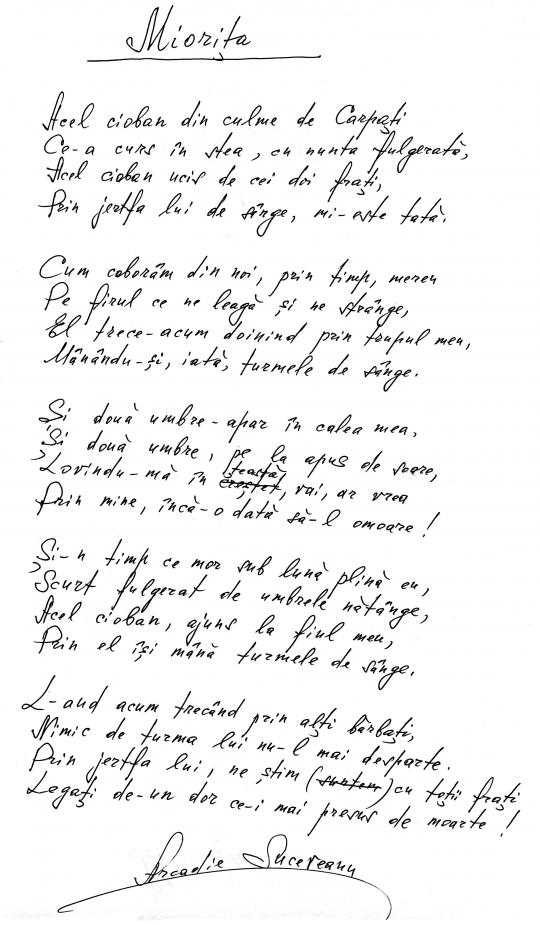 Miorița
Acel cioban din culme de Carpați
Ce-a curs în stea, cu nunta fulgerată,
Acel cioban ucis de cei doi frați,
Prin jertfa lui de sânge, mi-este tată.
Cum coborâm din noi, prin timp, mereu
Pe firul ce ne leagă și ne strânge,
El trece-acum doinind prin trupul meu,
Mânându-și, iată, turmele de sânge.
Și două umbre-apar în calea mea,
Și două umbre, pe la apus de soare,
Lovindu-mă în creștet, țeastă, vai, ar vrea
Prin mine, încă-o dată să-l omoare!
Și-n timp ce mor sub lună plină eu,
Scurt fulgerat de umbrele nătânge,
Acel cioban, ajuns la fiul meu,
Prin el își mână turmele de sânge.
L-aud acum trecând prin alți bărbați,
Nimic de turma lui nu-l mai desparte.
Prin jertfa lui, ne știm (suntem) cu toții frați
Legați de-un dor ce-i mai presus de moarte!
Arcadie Suceveanu